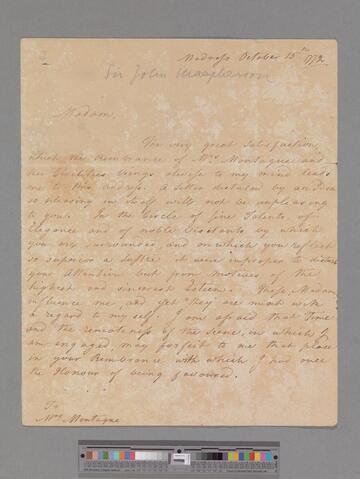 Madrass October 15th 1772
Sir John Macpherson
Madam,
The very great Satisfaction,
which the Remembrance of Mrs Montague and
her Civilities brings always to my mind leads
me to this address. A Letter dictated by an Idea
so pleasing in itself will not be unpleasing
to you. In the Circle of fine Talents of
Elegance and of noble Visitants by which
you are surrounded and on which you reflect
so superior a Lustre it were improper to disturb
your Attention but from Motives of the
highest and sincerest Esteem. These, Madam,
influence me, and yet they are mixt with
a regard to my self. I am afraid that Time
and the remoteness of the Scene, in which I
am engaged, may forfeit to me that place
in your Remembrance with which I had once
the Honour of being favoured.
To
Mrs Montague